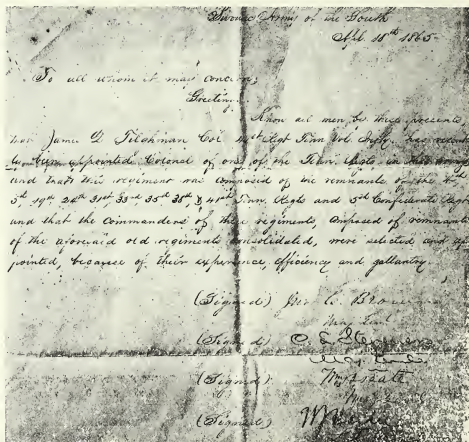 Bivouac Army of the South
Apl 18th 1865
To all whom it may concern;
Greeting
Know all men by these presents
that James D. Tillman Col 41st Regt Tenn Vol Infty has recently
been appointed Colonel of one of the Tenn Regts in this army
and that this regiment was composed of the remnants of the 4th
5th 19th 24th 31st 33rd 35th 38th & 41st Tenn Regts and 5th Confederate Regt
and that the commanders of these regiments, composed of remnants
of the aforesaid old regiments consolidated, were selected and ap
pointed, because of their experience, efficiency and gallantry.
(Signed) Jno C. Brown
Maj Genl
(Signed) C. L. Stevenson
Maj Genl
(Signed) Wm B Bate
Maj Genl
(Signed)